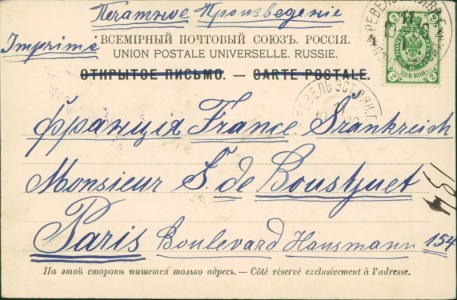 Печатное Произведеніе
Imprimé
ВСЕМІРНЫЙ ПОЧТОВЫЙ СОЮЗЪ. РОССІЯ.
UNION POSTALE UNIVERSELLE. RUSSIE.
ОТКРЫТОЕ ПИСЬМО. — CARTE POSTALE.
Франція France Frankreich
Monsieur S. de Boustquet
Paris Boulevard Hausmann 154
На этой сторонѣ пишется только адресъ. — Côté réservé exclusivement à l'adresse.